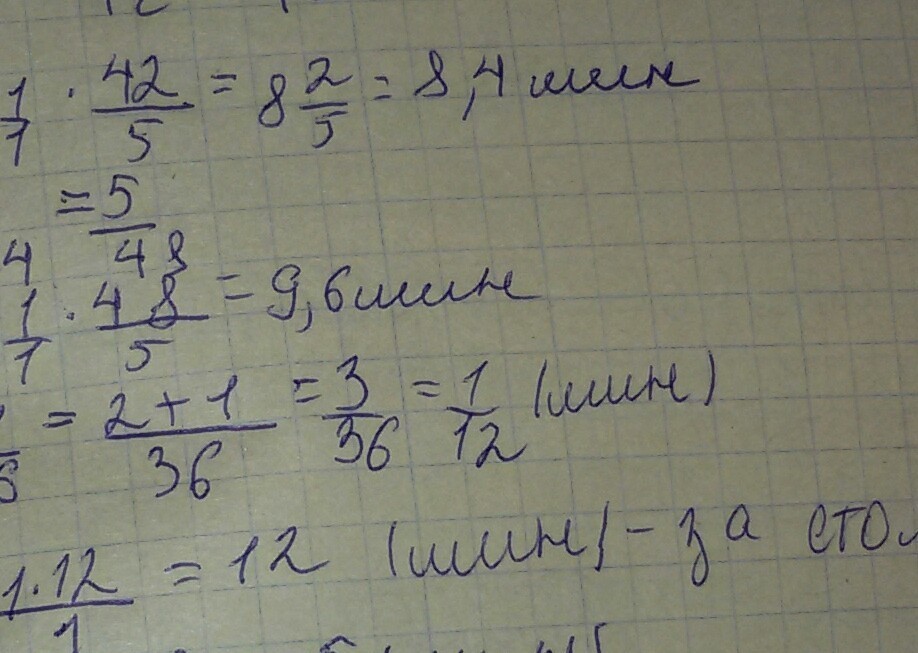 1/1 · 42/5 = 8 2/5 = 8,4 мин
= 5/48
4
1/1 · 48/5 = 9,6 мин
= 2+1/36 = 3/36 = 1/12 (мин)
1·12/1 = 12 (мин) - за сто